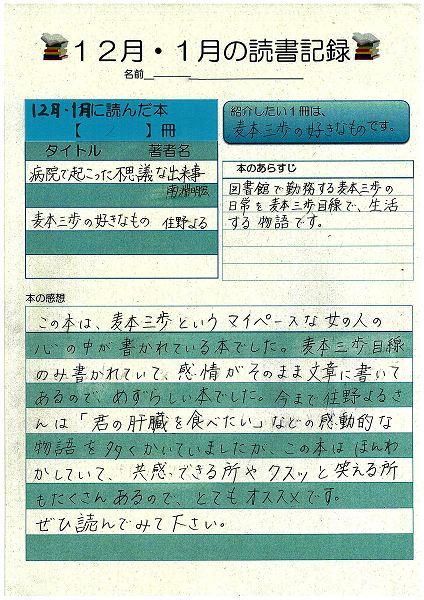 12月・1月の読書記録
名前
12月・1月に読んだ本
【 】冊
タイトル 著者名
病院で起こった不思議な出来事
南淵明宏
麦本三歩の好きなもの 住野よる
紹介したい1冊は、
麦本三歩の好きなものです。
本のあらすじ
図書館で勤務する麦本三歩の
日常を麦本三歩目線で、生活
する物語です。
本の感想
この本は、麦本三歩というマイペースな女の人の
心の中が書かれている本でした。麦本三歩目線
のみ書かれていて、感情がそのまま文章に書いて
あるので、めずらしい本でした。今まで住野よるさ
んは「君の肝臓を食べたい」などの感動的な
物語を多くかいていましたが、この本はほんわ
かしていて、共感できる所やクスッと笑える所
もたくさんあるので、とてもオススメです。
ぜひ読んでみて下さい。